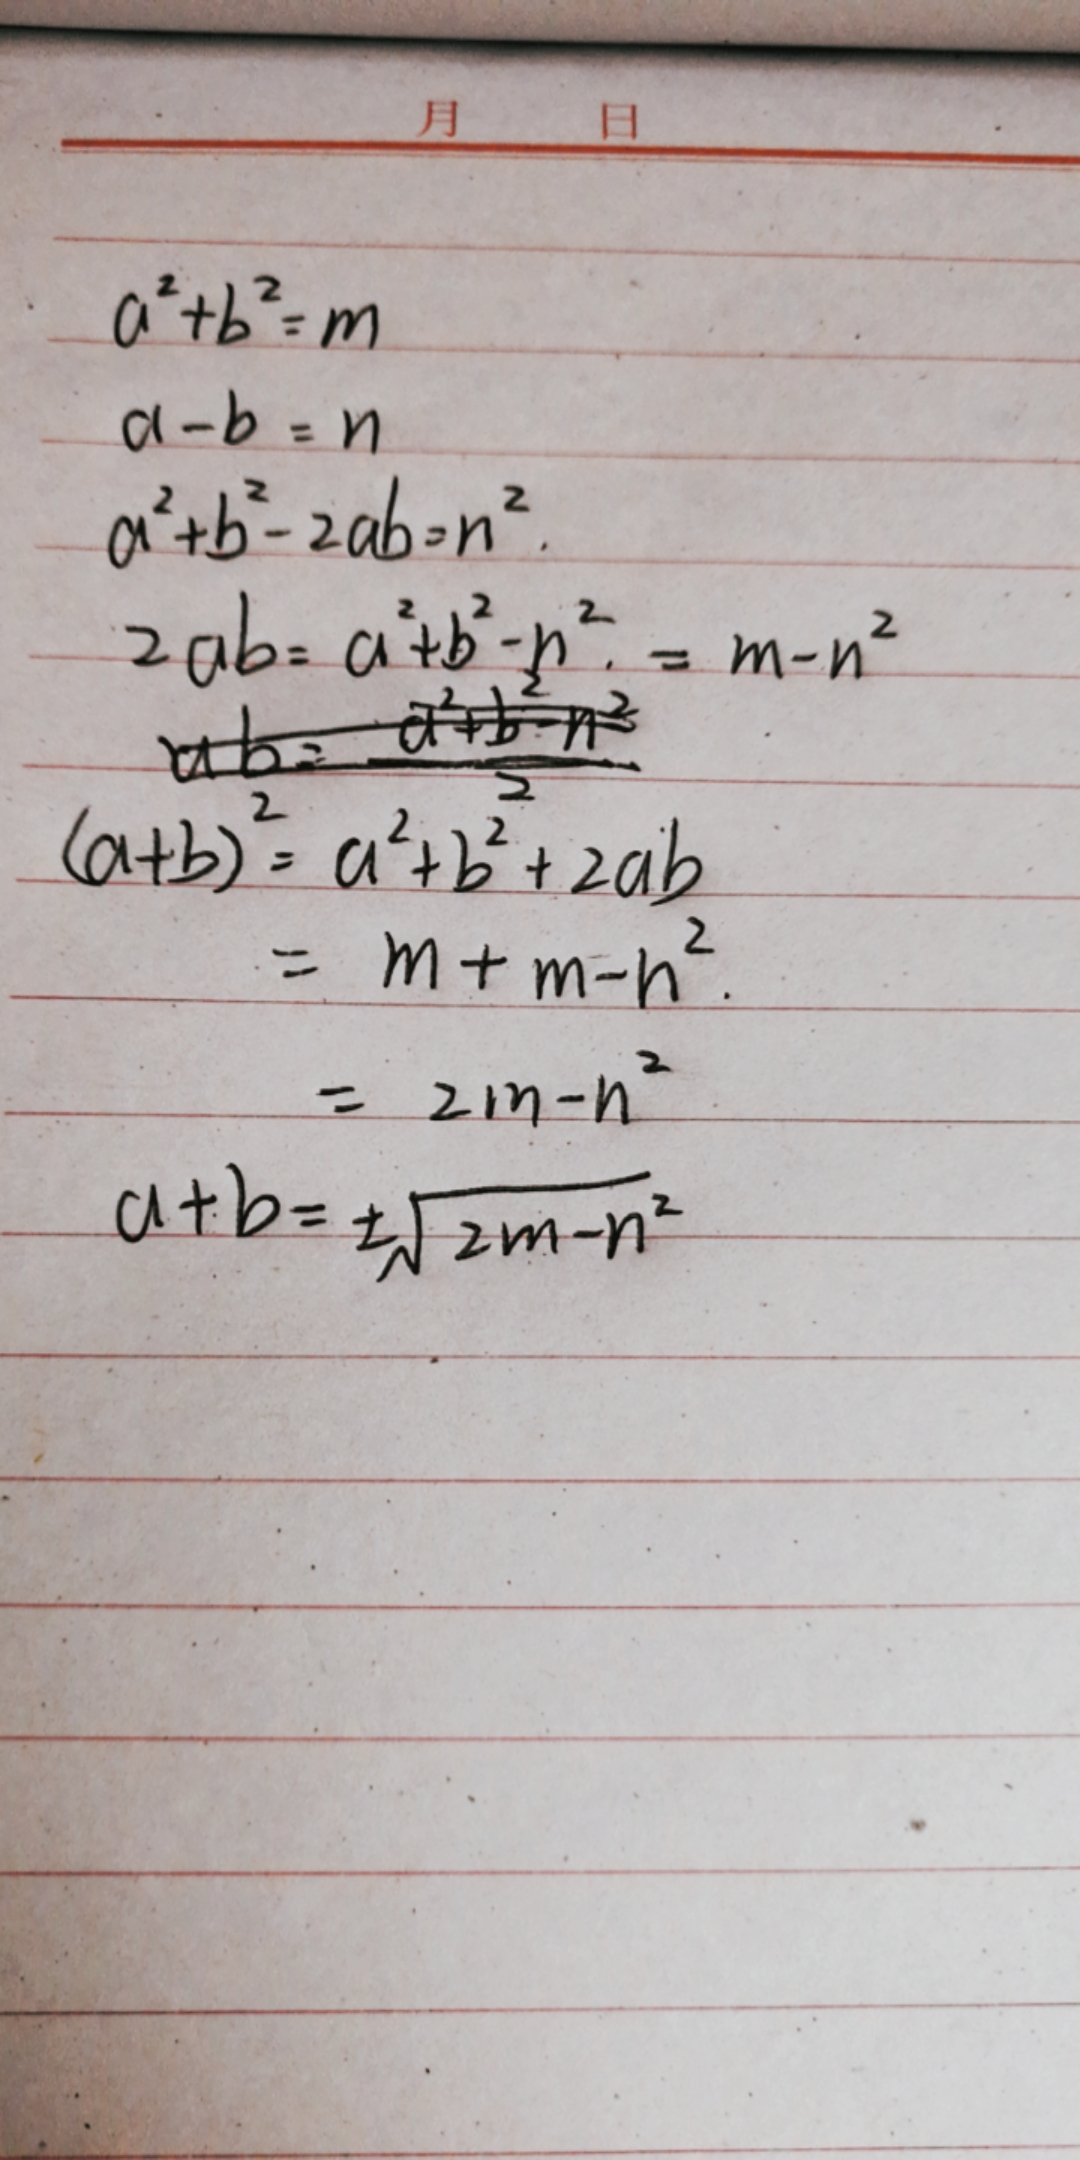 月 日
a²+b²=m
a-b=n
a²+b²-2ab=n².
2ab=a²+b²-n².=m-n²
ab=a²+b²-n²/2
(a+b)²=a²+b²+2ab
=m+m-n².
=2m-n²
a+b=±√2m-n²